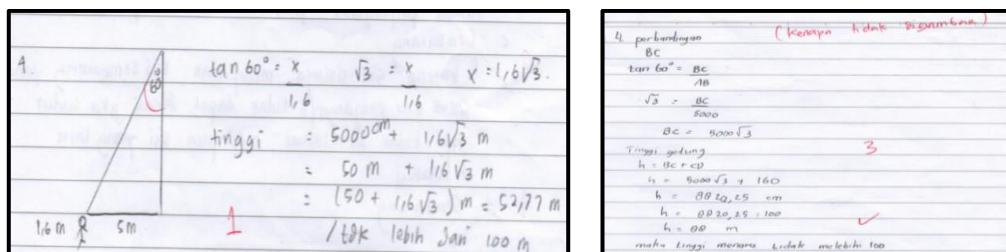 4.
60°
1,6 m
5m
tan 60° = x / 1,6
√3 = x / 1,6
x = 1,6√3.
tinggi = 5000 cm + 1,6√3 m
= 50 m + 1,6√3 m
= (50 + 1,6√3) m = 52,77 m
/ tdk lebih dari 100 m
1
(kenapa tidak digambar)
4. perbandingan
BC
tan 60° = BC / AB
√3 = BC / 5000
BC = 5000√3
3
Tinggi gedung
h = BC + CD
h = 5000√3 + 160
h = 8820,25 cm
h = 8820,25 : 100
h = 88 m
maka tinggi menara tidak melebihi 100